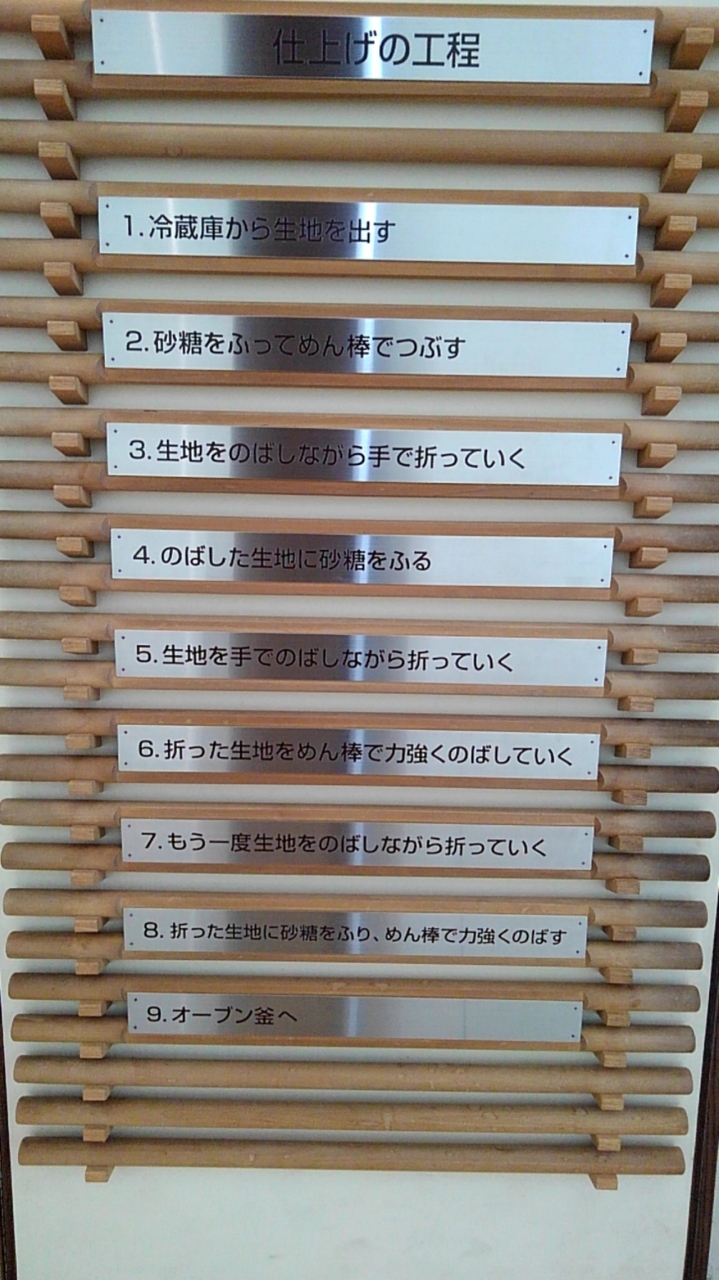 仕上げの工程
1.冷蔵庫から生地を出す
2.砂糖をふってめん棒でつぶす
3.生地をのばしながら手で折っていく
4.のばした生地に砂糖をふる
5.生地を手でのばしながら折っていく
6.折った生地をめん棒で力強くのばしていく
7.もう一度生地をのばしながら折っていく
8.折った生地に砂糖をふり、めん棒で力強くのばす
9.オーブン釜へ